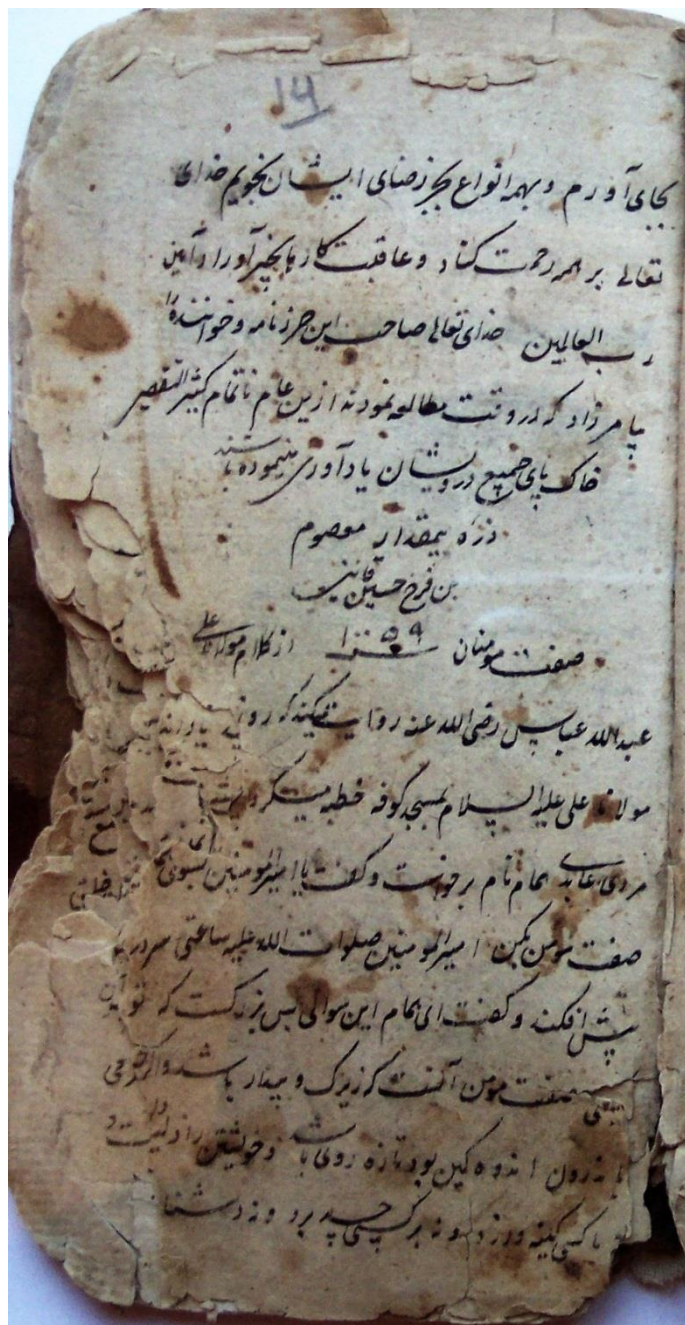 ۱۴
بجای آورم و بهمه انواع بحرز ضای ایشان بجویم خدای
تعالی بر همه رحمت کناد و عاقبت کارها بخیر آوراد آمین
رب العالمین خدای تعالی صاحب این حرزنامه و خوانندهٔ را
بیامرزاد که در وقت مطالعه نمودند ازین عام ناتمام کثیر التقصیر
خاک پای جمیع درویشان یادآوری مینموده باشند
ذره بیمقدار معصوم
بن فرخ حسین قاینی
صفت مومنان ۱۰۵۹ از کلام مولانا علی
عبدالله عباس رضی الله عنه روایت میکند که روزی
مولانا علی علیه السلام بمسجد کوفه خطبه میکرد
مردی عابدی همام نام برخواست و گفت یا امیرالمومنین
صفت مومن بکن امیرالمومنین صلوات الله علیه ساعتی سر در
پیش افکند و گفت ای همام این سوالی بس بزرگست که تو
صفت مومن آنست که زیرک و بیدار باشد و اگر چه
اندرون اندوهگین بود تازه روی باشد و خویشتن را ذلیل
با کسی کینه ورزد و نه بر کسی حسد برد و نه دشنا